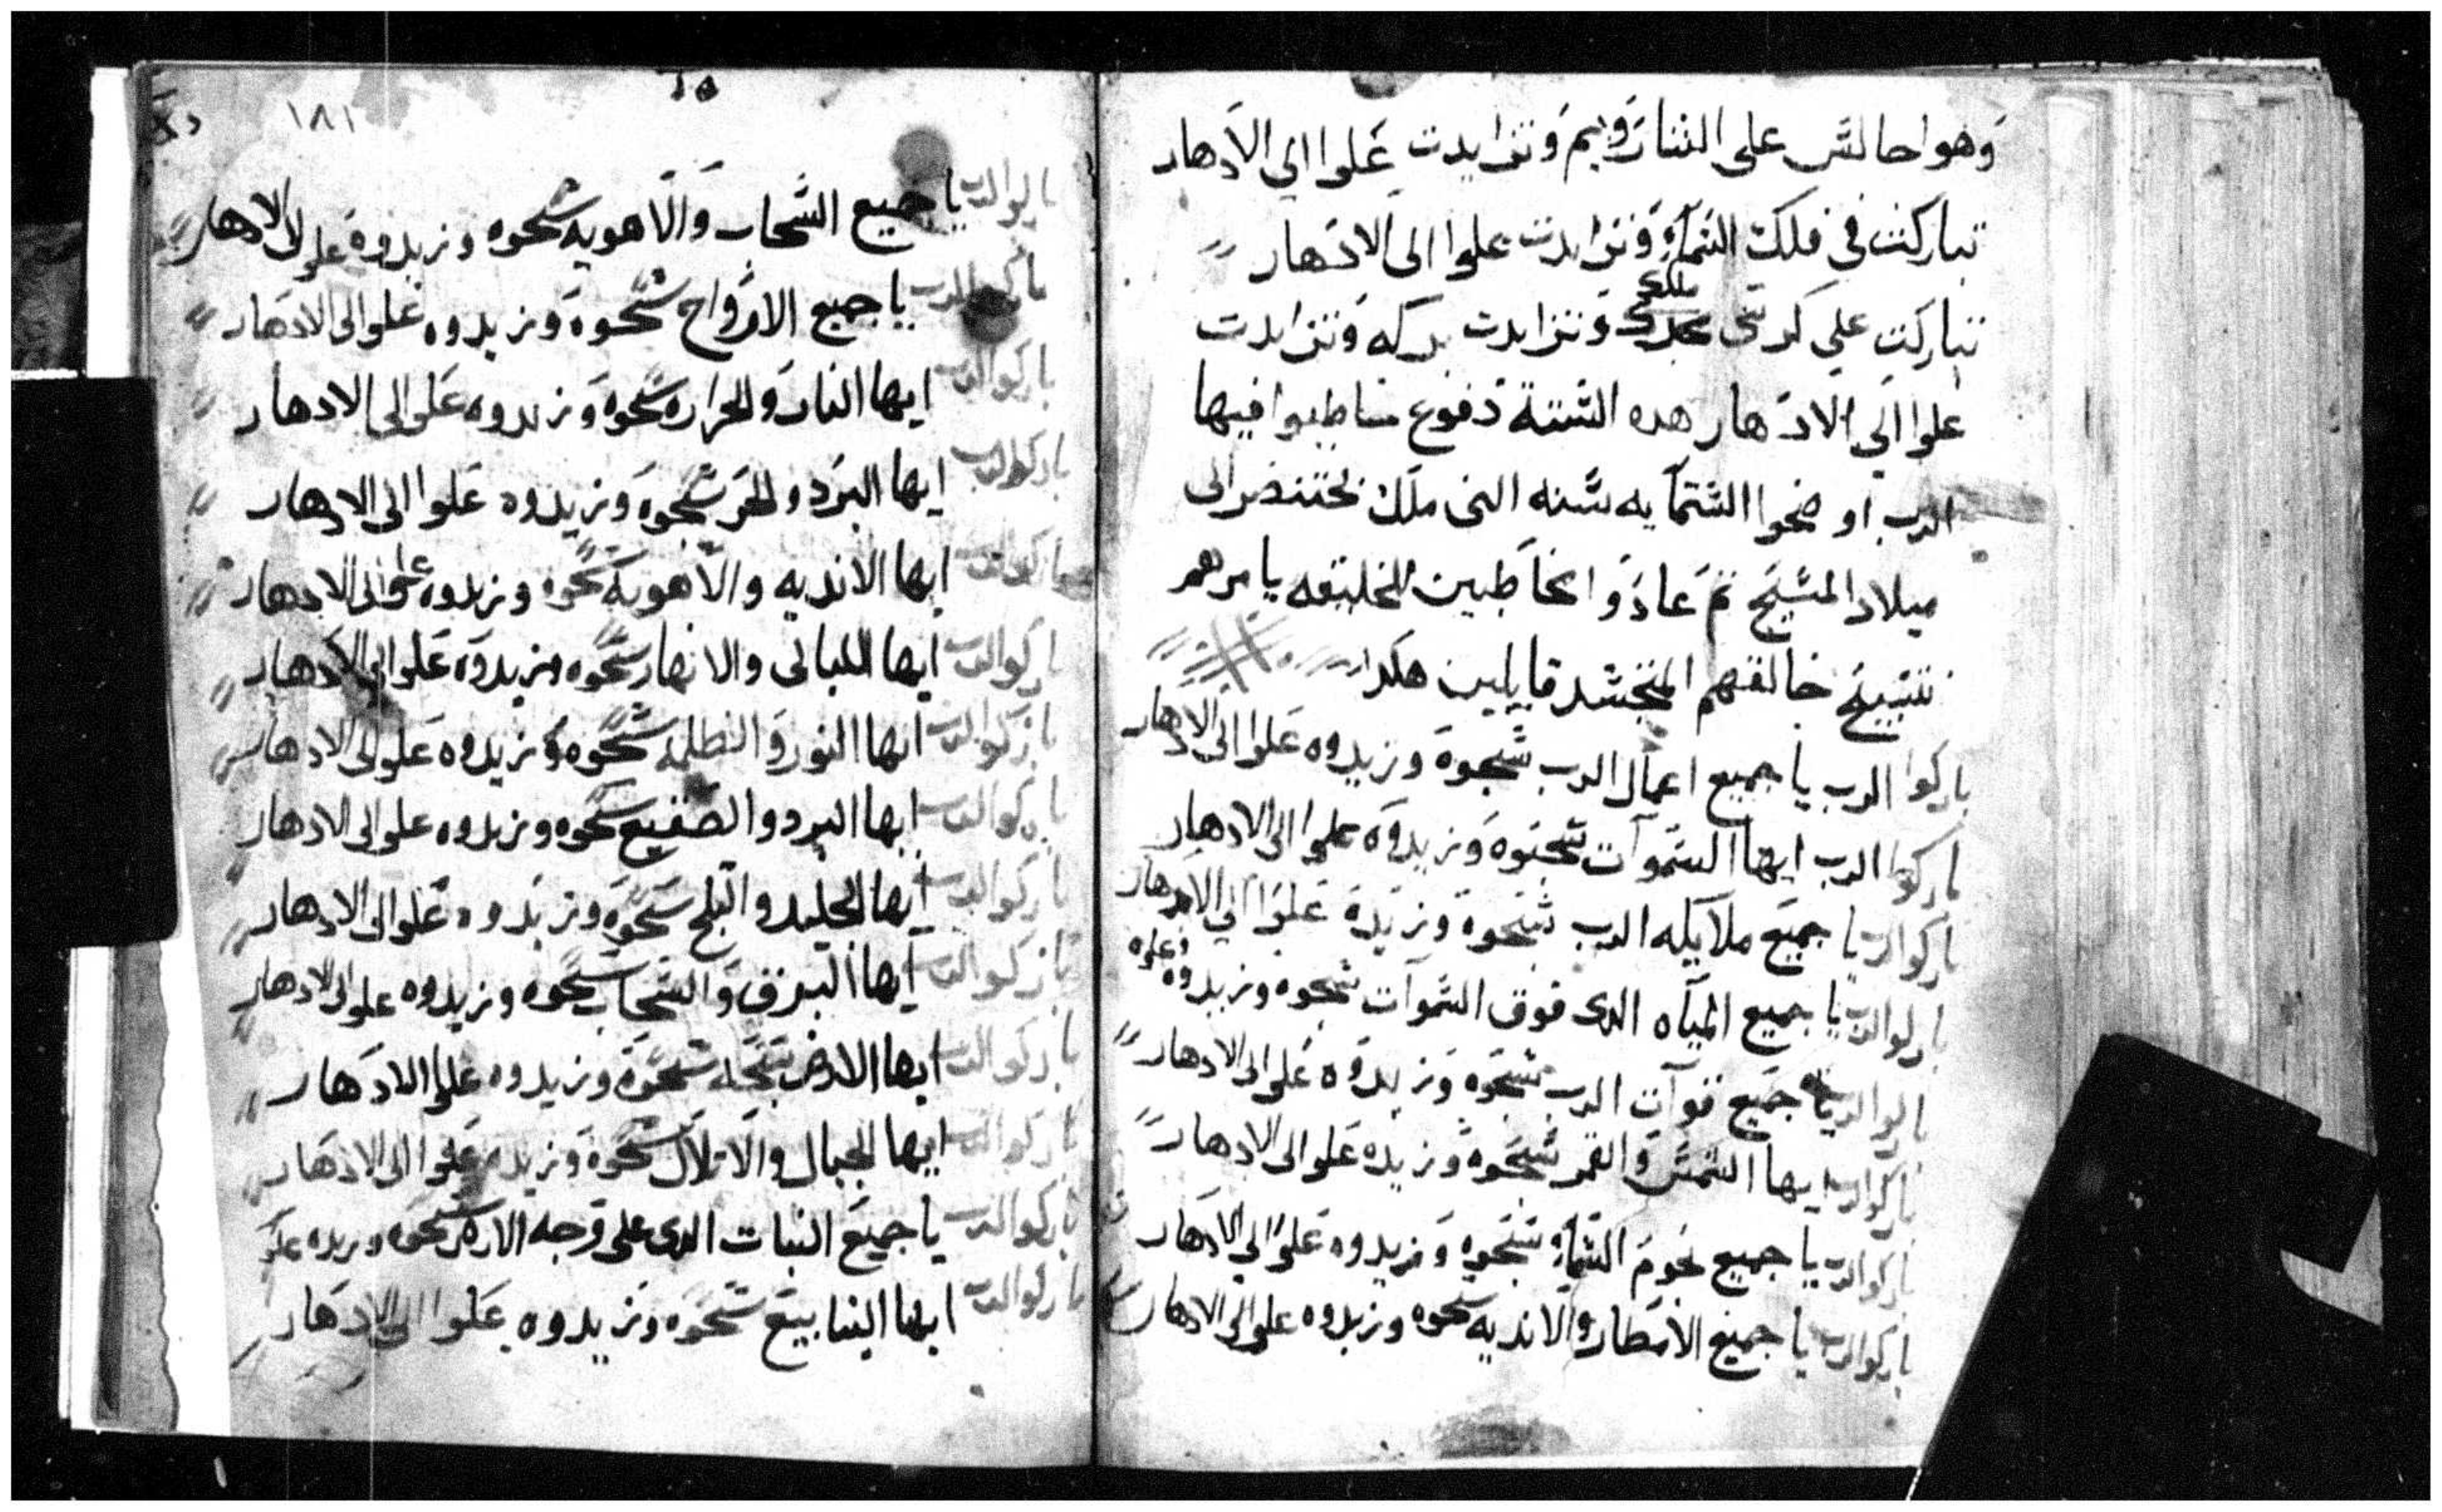 وهوا جالس على الشاروبيم وتتزايدت علوا الي الادهار
تباركت في فلك السماء وتتزايدت علوا الى الادهار
تباركت علي كرسى مجدك ملكك وتتزايدت بركه وتتزايدت
علوا الي الادهار هده الستة دفوع خاطبوا فيها
الرب او ضحوا الستمايه سنه التى ملك بختنضر الى
ميلاد المسيح تم عادوا مخاطبين الخليقه يامرهم
تسبيح خالقهم المتجسد قايلين هكدا
باركوا الرب يا جميع اعمال الرب سبحوه وزيدوه علوا الى الادهار
باركوا الرب ايها السموات سبحوه وزيدوه علوا الى الادهار
باركوا الرب يا جميع ملايكه الرب سبحوه وزيده علوا الي الادهار
باركوا الرب يا جميع المياه الدى فوق السموات سبحوه وزيدوه علوه
باركوا الرب يا جميع قوات الرب سبحوه وزيدوه علوا الى الادهار
باركوا الرب ايها الشمس والقمر سبحوه وزيده علوا الى الادهار
باركوا الرب يا جميع نجوم السماء سبحوه وزيدوه علوا الي الادهار
باركوا الرب يا جميع الامطار والانديه سبحوه وزيدوه علوا الى الادهار
١٨١
باركوا الرب يا جميع السحاب والاهويه سبحوه وزيدوه علوا الى الادهار
باركوا الرب يا جميع الارواح سبحوه وزيدوه علوا الى الادهار
باركوا الرب ايها النار والحراره سبحوه وزيدوه علوا الى الادهار
باركوا الرب ايها البرد والحر سبحوه وزيدوه علوا الى الادهار
باركوا الرب ايها الانديه والاهويه سبحوه وزيدوه علوا الى الادهار
باركوا الرب ايها الليالى والانهار سبحوه وزيدوه علوا الى الادهار
باركوا الرب ايها النور والظلمه سبحوه وزيدوه علوا الى الادهار
باركوا الرب ايها البرد والصقيع سبحوه وزيدوه علوا الى الادهار
باركوا الرب ايها الجليد والتلج سبحوه وزيدوه علوا الى الادهار
باركوا الرب ايها البرق والسحاب سبحوه وزيدوه علوا الى الادهار
باركوا الرب ايها الارض سبحوه وزيدوه علوا الادهار
باركوا الرب ايها الجبال والاتلال سبحوه وزيده علوا الى الادهار
باركوا الرب يا جميع النبات الدى على وجه الارض سبحوه وزيده علو
باركوا الرب ايها الينابيع سبحوه وزيدوه علوا الى الادهار